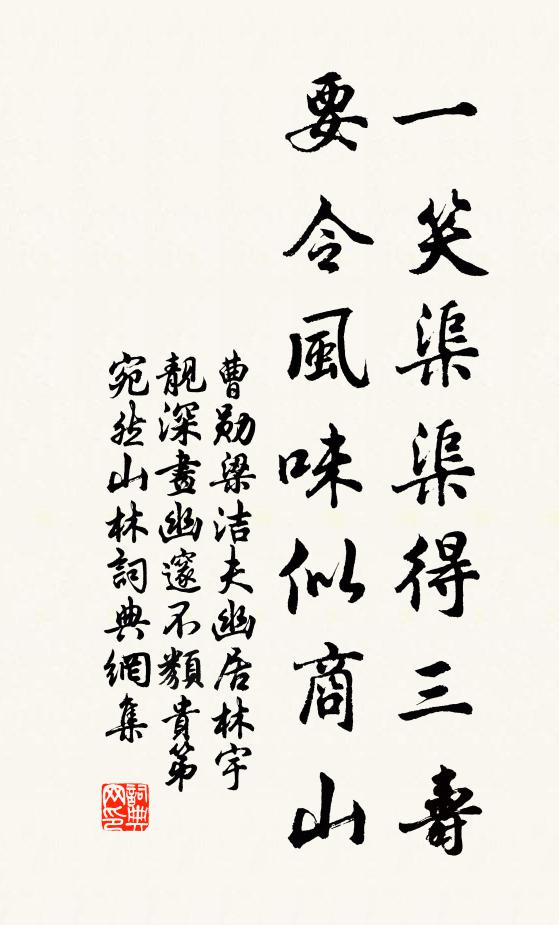 一笑渠渠得三壽
要令風味似商山
曹勛梁洁夫幽居林宇
靚深畫幽邃不類貴第
宛然山林詞典網集
詞典網印